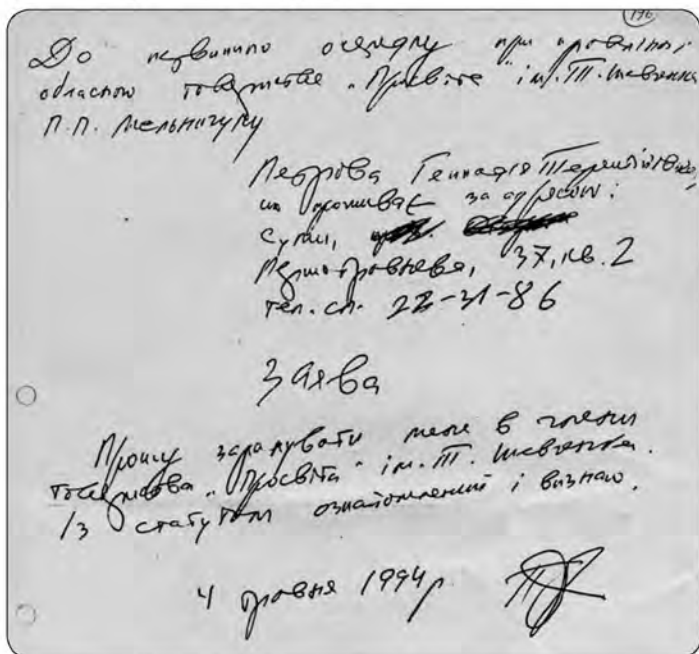 196
До первинного осередку при правлінні
обласного товариства "Просвіта" ім. Т. Шевченка
П.П. Мельничуку
Петрова Геннадія Терентійовича,
що проживає за адресою:
Суми,
Першотравнева, 37, кв. 2
тел. сл. 22-31-86
Заява
Прошу зарахувати мене в члени
товариства "Просвіта" ім. Т. Шевченка.
Із статутом ознайомлений і визнаю.
4 травня 1994 р.